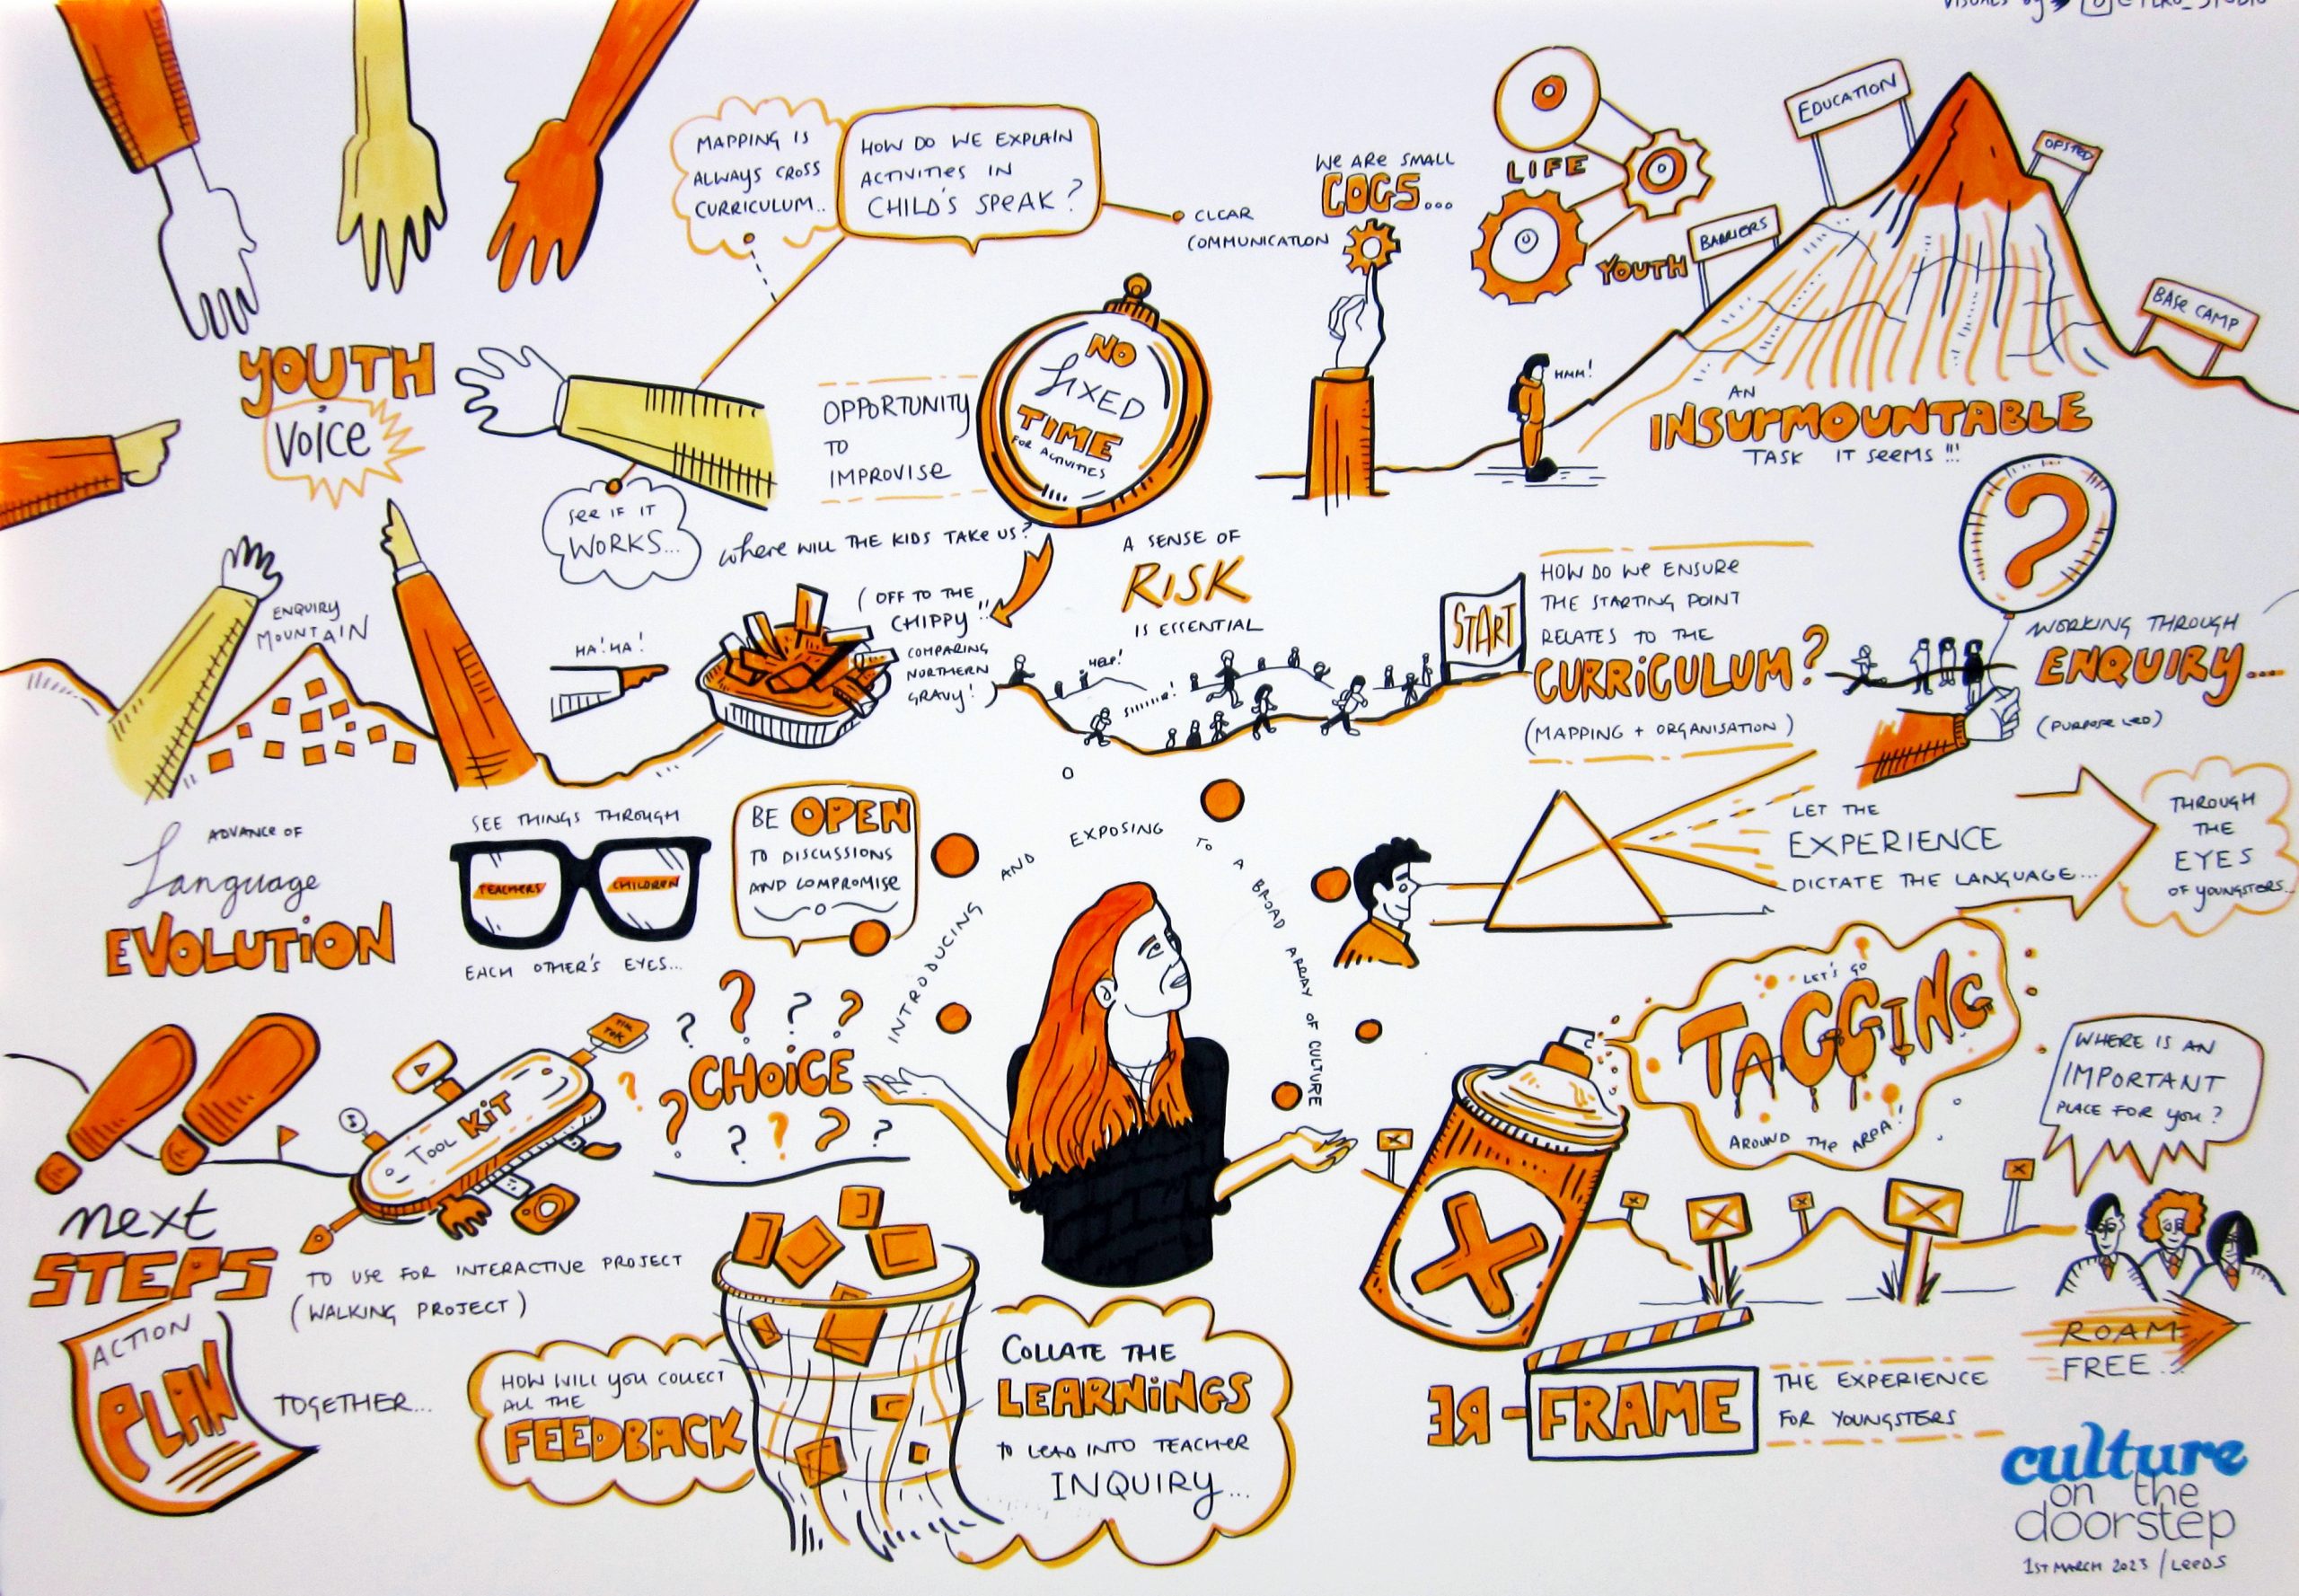 VISUALS by
MAPPING IS
ALWAYS CROSS
CURRICULUM..
HOW DO WE EXPLAIN
ACTIVITIES IN
CHILD'S SPEAK?
CLEAR
COMMUNICATION
WE ARE SMALL
COGS...
LIFE
YOUTH
EDUCATION
OFSTED
BARRIERS
BASE CAMP
HMM!
AN
INSURMOUNTABLE
TASK IT SEEMS !!!
YOUTH
VOICE
SEE IF IT
WORKS...
OPPORTUNITY
TO
IMPROVISE
NO
FIXED
TIME
FOR ACTIVITIES
WHERE WILL THE KIDS TAKE US?
(OFF TO THE
CHIPPY!!
COMPARING
NORTHERN
GRAVY!)
HA! HA!
ENQUIRY
MOUNTAIN
A SENSE OF
RISK
IS ESSENTIAL
HELP!
START
HOW DO WE ENSURE
THE STARTING POINT
RELATES TO THE
CURRICULUM?
(MAPPING + ORGANISATION)
?
WORKING THROUGH
ENQUIRY...
(PURPOSE LED)
ADVANCE OF
Language
EVOLUTION
SEE THINGS THROUGH
TEACHERS
CHILDREN
EACH OTHER'S EYES...
BE OPEN
TO DISCUSSIONS
AND COMPROMISE
INTRODUCING AND EXPOSING TO A BROAD ARRAY OF CULTURE
LET THE
EXPERIENCE
DICTATE THE LANGUAGE...
THROUGH
THE
EYES
OF YOUNGSTERS...
next
STEPS
TOOL KIT
TIK
TOK
TO USE FOR INTERACTIVE PROJECT
(WALKING PROJECT)
? ? ? ?
CHOICE
? ? ? ? ? ?
ACTION
PLAN
TOGETHER...
HOW WILL YOU COLLECT
ALL THE
FEEDBACK
COLLATE THE
LEARNINGS
TO LEAD INTO TEACHER
INQUIRY...
LET'S GO
TAGGING
AROUND THE AREA!
WHERE IS AN
IMPORTANT
PLACE FOR YOU?
ROAM
FREE...
RE-FRAME
THE EXPERIENCE
FOR YOUNGSTERS
culture
on the
doorstep
1ST MARCH 2023 / LEEDS